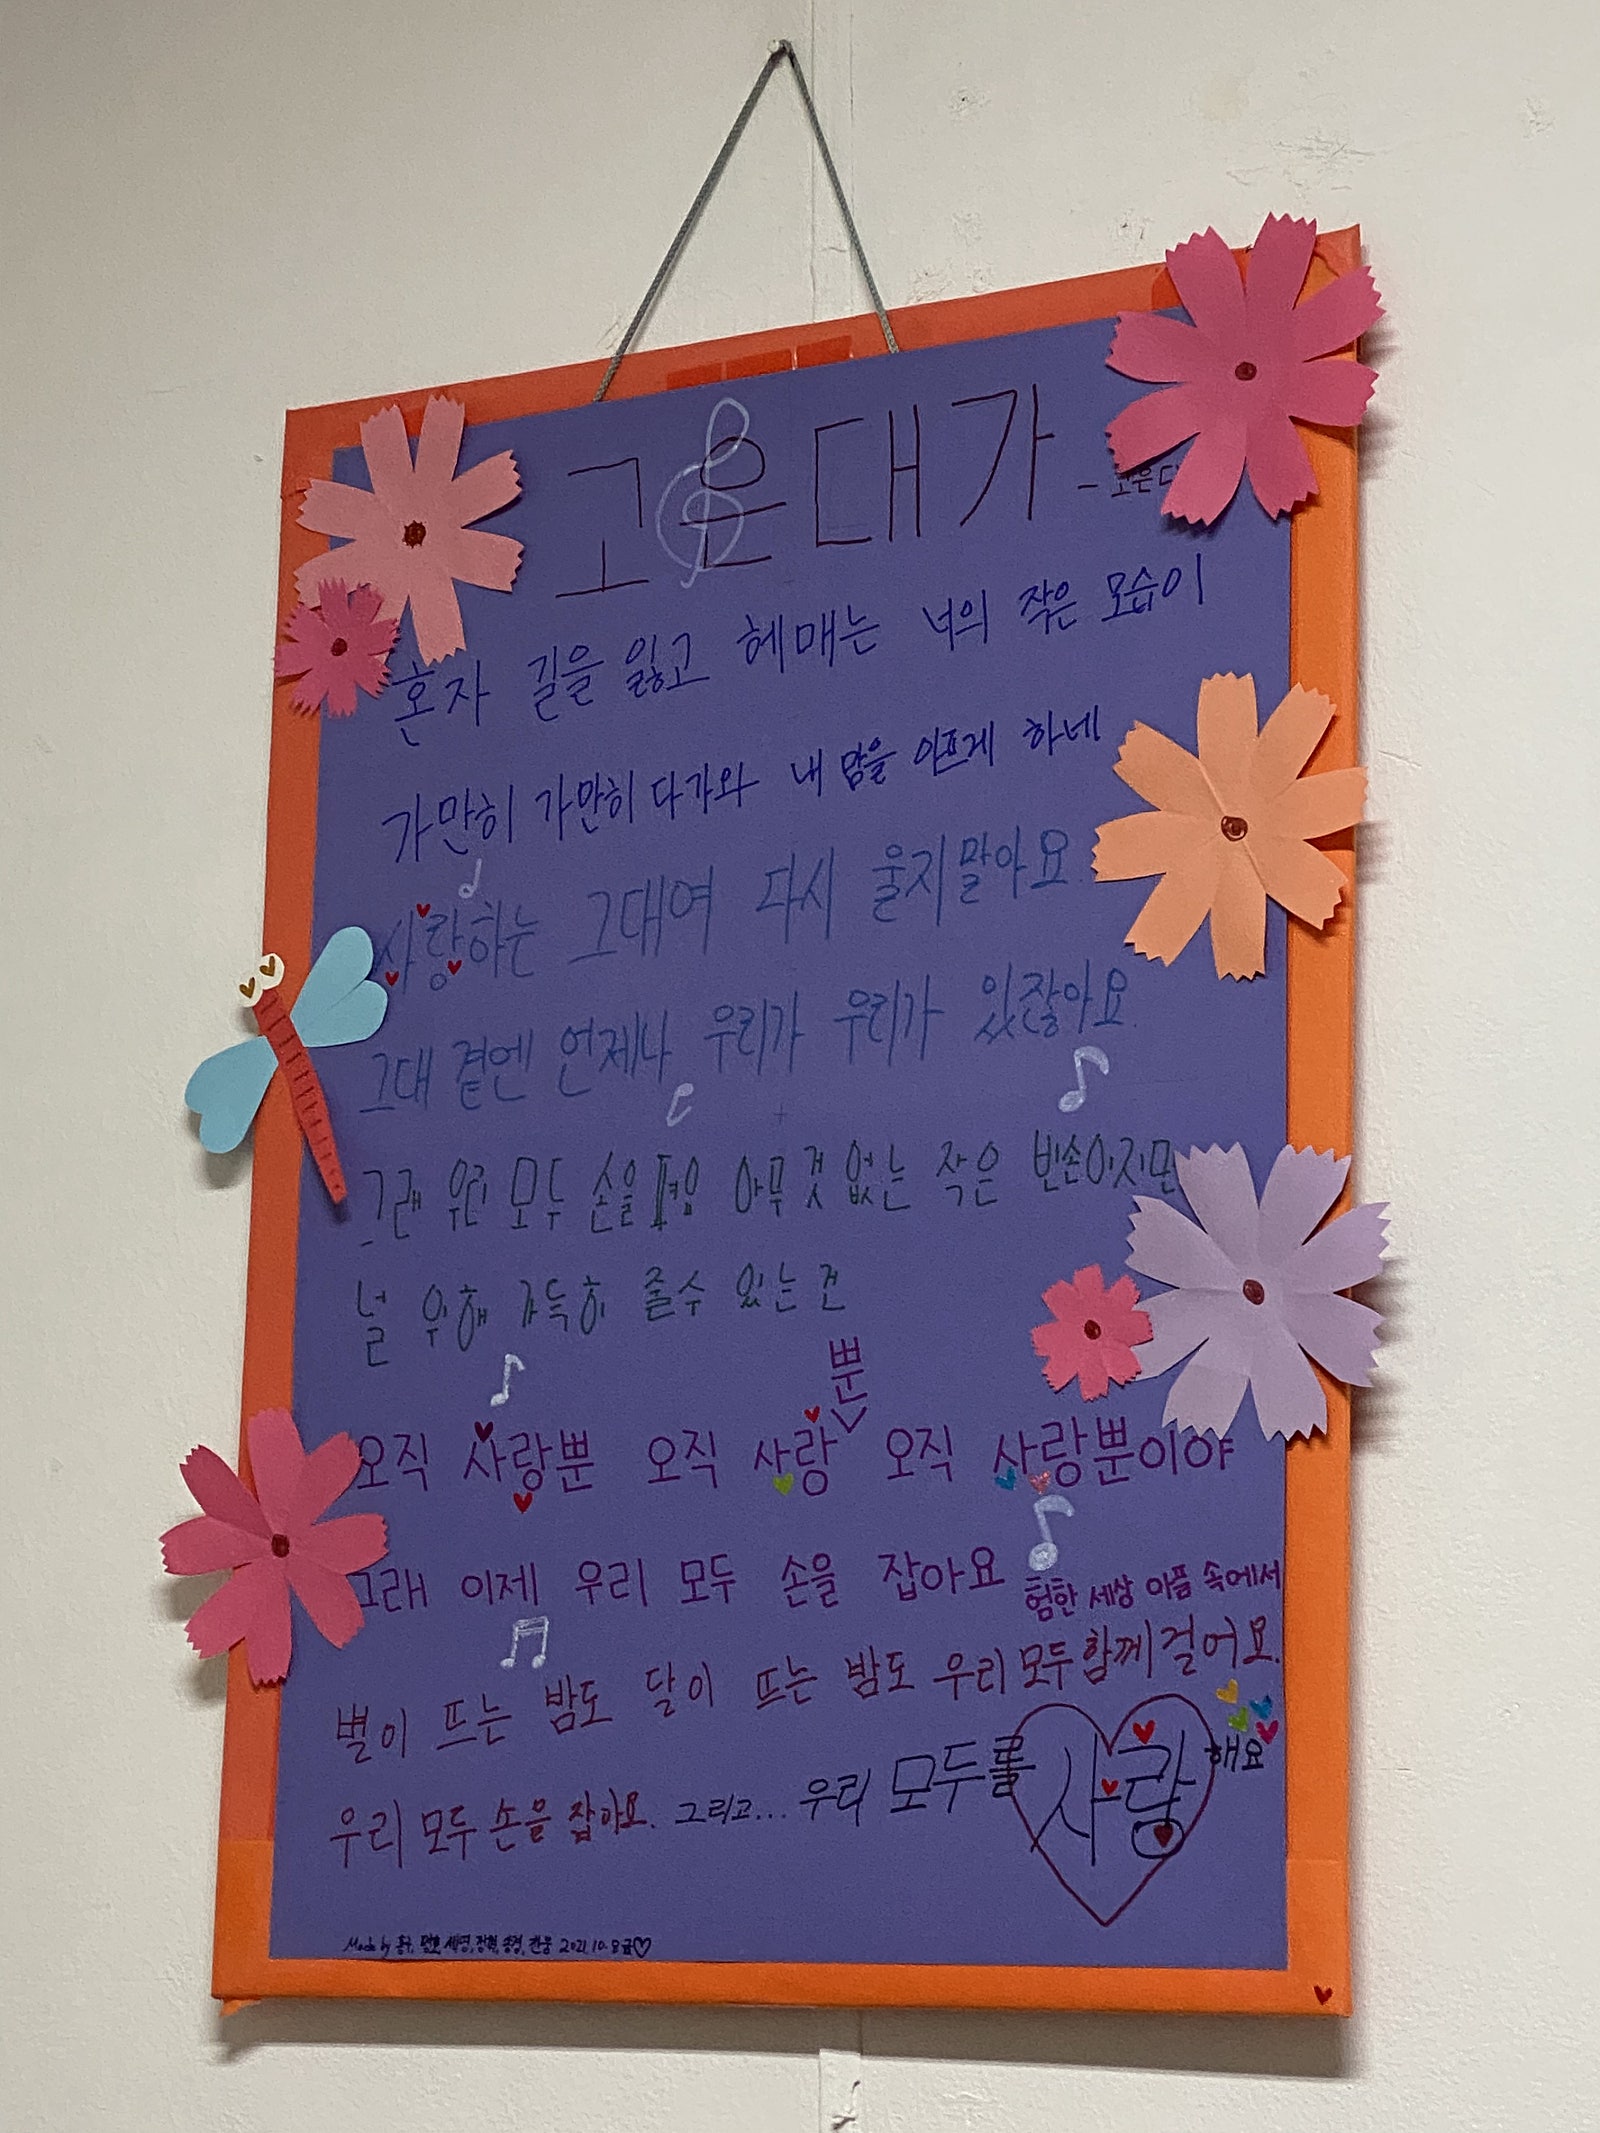 고은대가
- 고은
혼자 길을 잃고 헤매는 너의 작은 모습이
가만히 가만히 다가와 내 맘을 아프게 하네
사랑하는 그대여 다시 울지말아요.
그대 곁엔 언제나 우리가 우리가 있잖아요.
그래 우린 모두 손을 아무것 없는 작은 빈손이지만
널 위해 가득히 줄수 있는건
오직 사랑뿐 오직 사랑뿐 오직 사랑뿐이야
그래 이제 우리 모두 손을 잡아요 험한 세상 아픔 속에서
별이 뜨는 밤도 달이 뜨는 밤도 우리 모두 함께 걸어요.
우리 모두 손을 잡아요. 그리고... 우리 모두를 사랑해요
Made by 2021.10.8 금♡